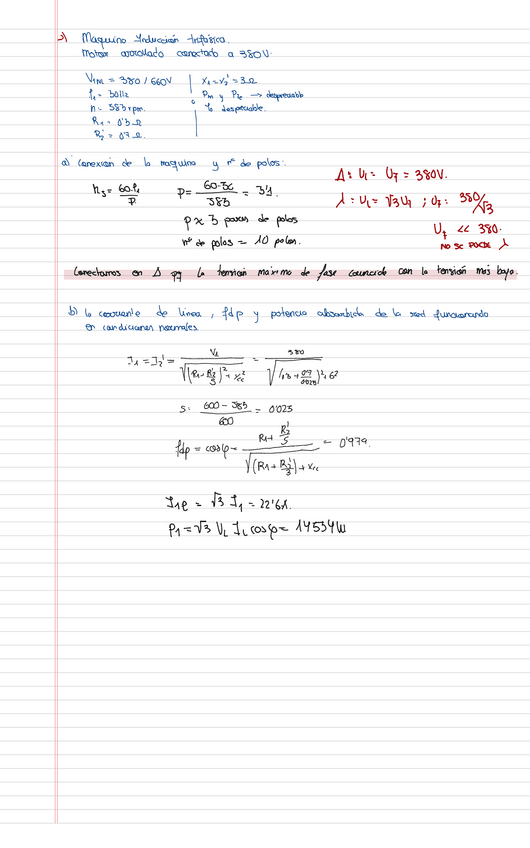 Maquina Inducción trifásica.
Motor arrollado conectado a 380V.
V1N = 380/660V
f1 = 50Hz
n = 583 rpm.
R1 = 0'3 Ω
R2' = 0'7 Ω.
x1 = x2' = 3Ω
Pm y Pfe → despreciabb
Io despreciable.
a) Conexión de la maquina y nº de polos:
ns = 60·f1/P
P = 60·50/583 = 5'1
p ≈ 5 pares de polos
nº de polos = 10 polos.
Δ: UL = UF = 380V.
λ: UL = √3 UF ; UF: 380/√3
UF << 380.
NO SE PUEDE λ
Conectamos en Δ pq la tensión maxima de fase coincide con la tensión más baja.
b) la corriente de linea, fdp y potencia absorbida de la red funcionando
en condiciones normales.
S: 600 - 583/600 = 0'023
= 0'979.
I1l = √3 I1 = 22'6A.
P1 = √3 UL IL cosφ = 14534W